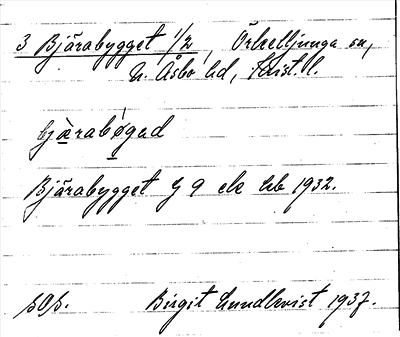 3 Bjärabygget 1/2, Örkelljunga sn,
N. Åsbo hd, Krist. l.
bjärabøgəd
Bjärabygget 9 ek kb 1932.
sOs. Birgit Lundkvist 1937.